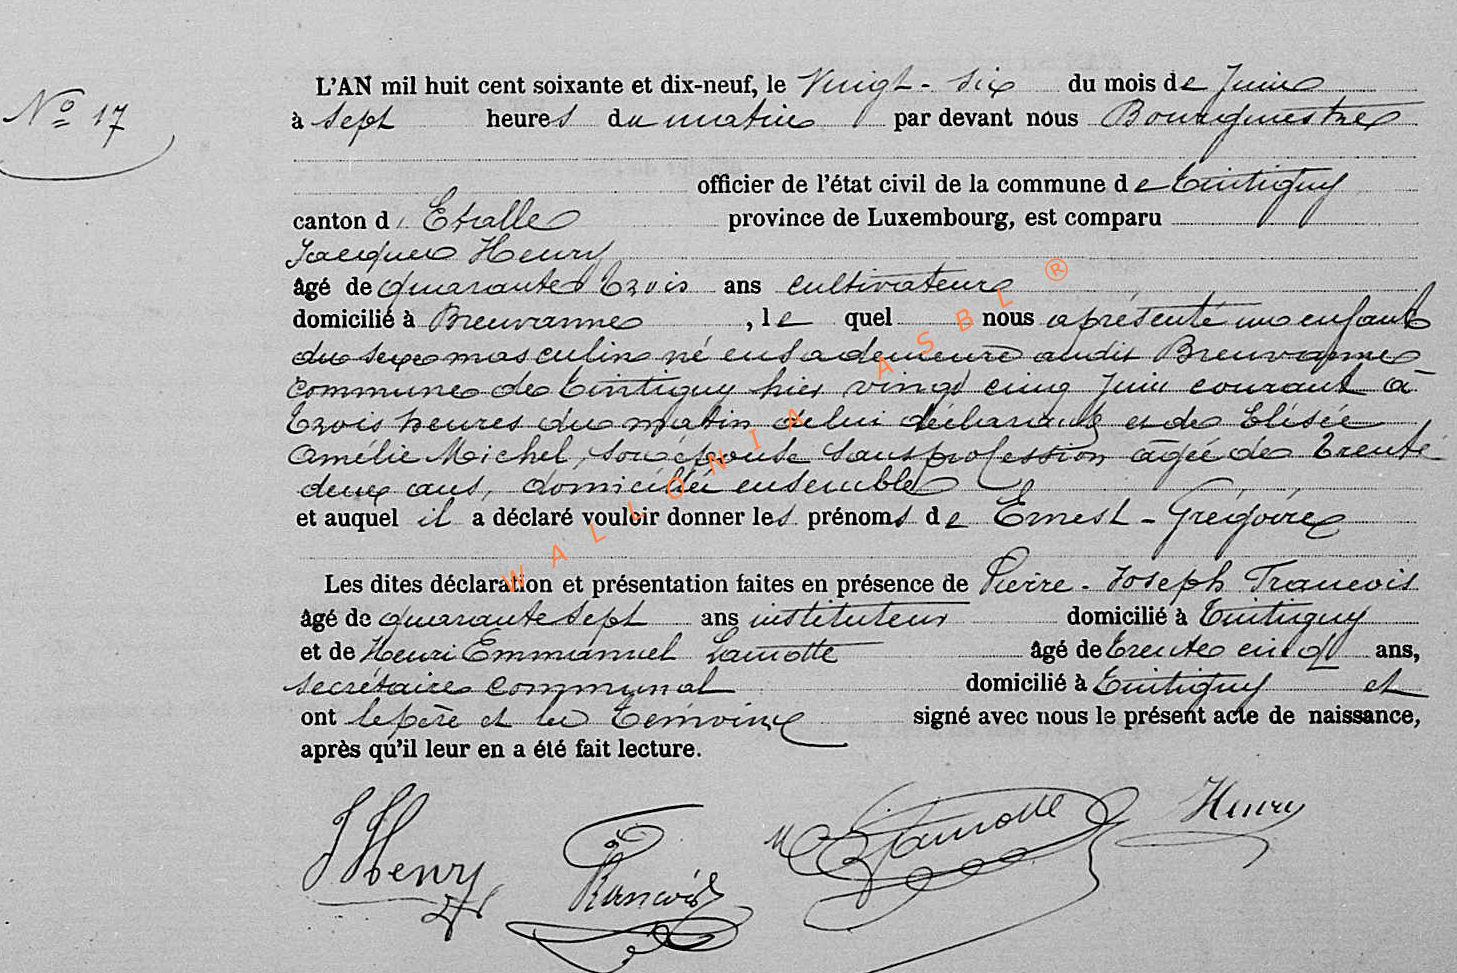 N° 17
L'AN mil huit cent soixante et dix-neuf, le Vingt-six du mois de Juin
à sept heures du matin par devant nous Bourgmestre
officier de l'état civil de la commune de Tintigny
canton d'Etalle province de Luxembourg, est comparu
Jacques Henry
âgé de quarante trois ans cultivateur
domicilié à Breuvanne, lequel nous a présenté un enfant
du sexe masculin né en sa demeure audit Breuvanne
commune de Tintigny hier vingt cinq Juin courant à
trois heures du matin de lui déclarant et de Elisée
Amélie Michel, son épouse sans profession âgée de trente
deux ans, domiciliés ensemble
et auquel il a déclaré vouloir donner les prénoms de Ernest-Grégoire
Les dites déclaration et présentation faites en présence de Pierre-Joseph Francois
âgé de quarante sept ans instituteur domicilié à Tintigny
et de Henri Emmanuel Lamotte âgé de trente cinq ans,
secrétaire communal domicilié à Tintigny et
ont le père et les témoins signé avec nous le présent acte de naissance,
après qu'il leur en a été fait lecture.
J Henry Francois Lamotte Henry
WALLONIA ASBL ®